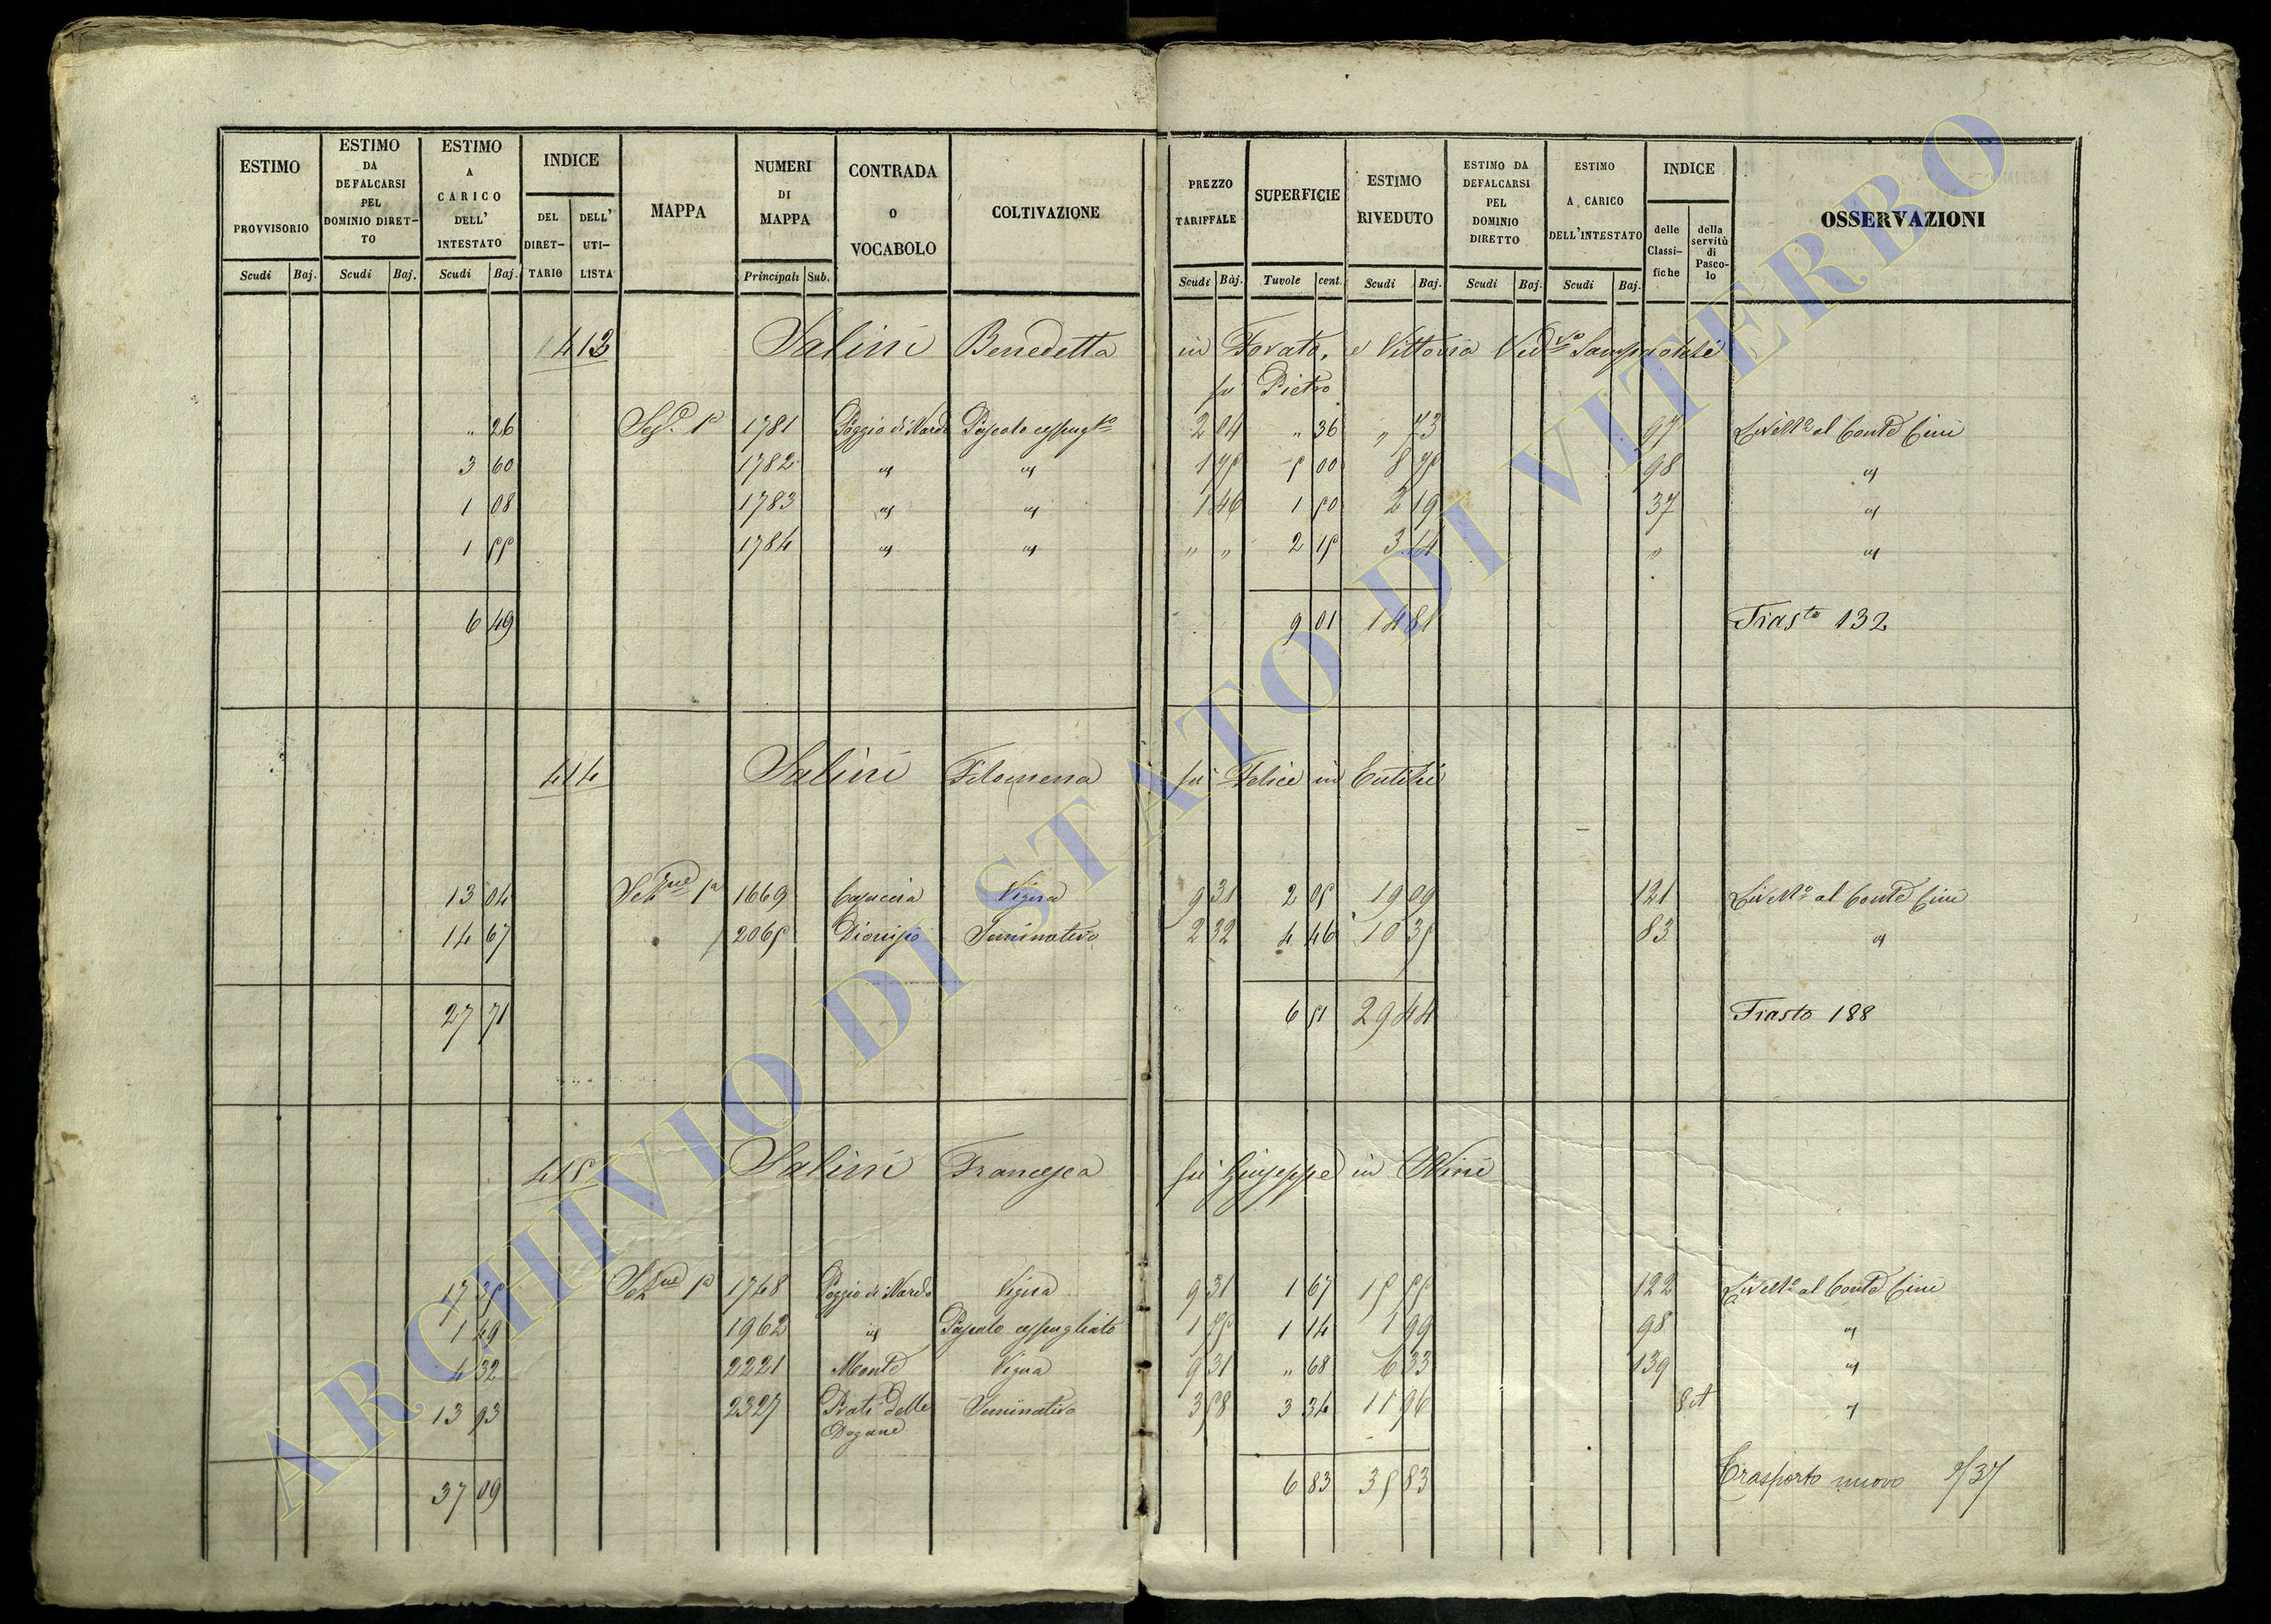 ESTIMO PROVVISORIO | ESTIMO DA DEFALCARSI PEL DOMINIO DIRETTO | ESTIMO A CARICO DELL' INTESTATO | INDICE DEL DIRETTARIO | DELL' UTILISTA | MAPPA | NUMERI DI MAPPA | CONTRADA O VOCABOLO | COLTIVAZIONE | PREZZO TARIFFALE | SUPERFICIE | ESTIMO RIVEDUTO | ESTIMO DA DEFALCARSI PEL DOMINIO DIRETTO | ESTIMO A CARICO DELL'INTESTATO | INDICE delle Classifiche | della servitù di Pascolo | OSSERVAZIONI
Scudi Baj. Scudi Baj. Scudi Baj. Principali Sub. Scudi Baj. Tavole cent. Scudi Baj. Scudi Baj. Scudi Baj.
413 Salini Benedetta in Fovato, e Vittoria Ved.va
fu Pietro
" 26 Sez.e 1a 1781 Poggio di Nardo Pascolo cespug.to 2 04 " 36 " 73 97 Livell.o al Conte Cini
3 60 1782 " " 1 75 5 00 8 75 98 "
1 08 1783 " " 1 46 1 50 2 19 37 "
1 55 1784 " " " " 2 15 3 14 " "
6 49 9 01 14 81 Trasto 132
414 Salini Filomena fu Felice in
13 04 Sez.ne 1a 1669 Capaccia Vigna 9 31 2 05 19 09 121 Livell.o al Conte Cini
14 67 2065 Dionisio Seminativo 2 32 4 46 10 35 83 "
27 71 6 51 29 44 Trasto 188
415 Salini Francesca fu Giuseppe in
17 35 Sez.ne 1a 1748 Poggio di Nardo Vigna 9 31 1 67 15 55 122 Livell.o al Conte Cini
1 49 1962 " Pascolo cespugliato 1 75 1 14 1 99 98 "
4 32 2221 Monte Vigna 9 31 " 68 6 33 139 "
13 93 2327 Prati delle Dogane Seminativo 3 58 3 34 11 96 8 A "
37 09 6 83 35 83 Trasporto nuovo 2/37
ARCHIVIO DI STATO DI VITERBO